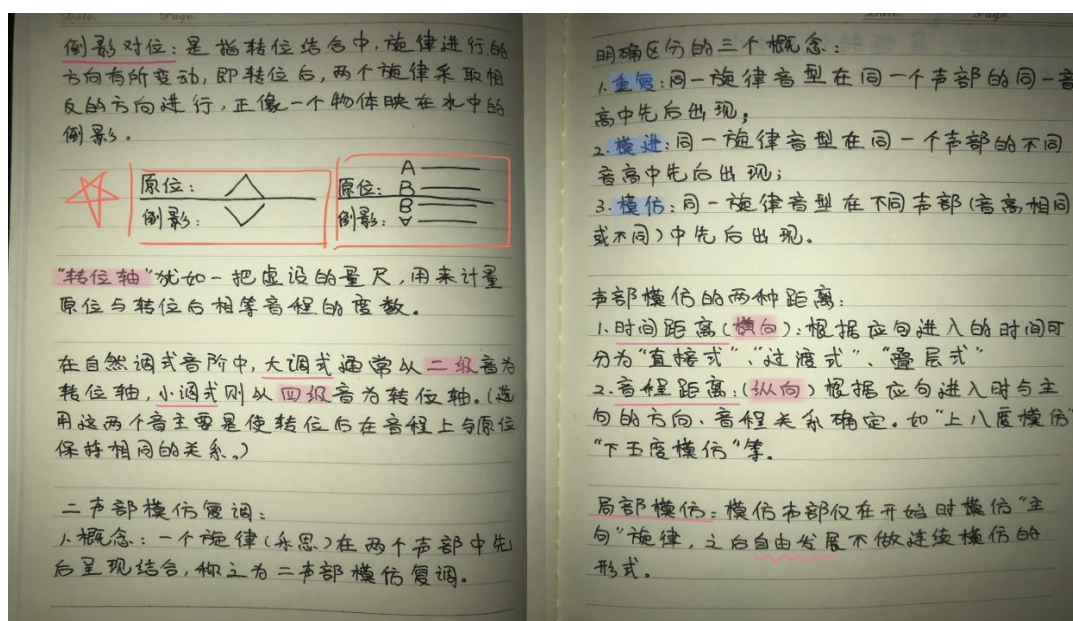 Date.        Page.
倒影对位：是指转位结合中，旋律进行的
方向有所变动，即转位后，两个旋律采取相
反的方向进行，正像一个物体映在水中的
倒影。
原位：
倒影：
A
原位：B
B
倒影：∀
“转位轴”犹如一把虚设的量尺，用来计量
原位与转位后相等音程的度数。
在自然调式音阶中，大调式通常以二级音为
转位轴，小调式则以四级音为转位轴。（选
用这两个音主要是使转位后在音程上与原位
保持相同的关系。）
二声部模仿复调：
1.概念：一个旋律（乐思）在两个声部中先
后呈现结合，称之为二声部模仿复调。
明确区分的三个概念：
1.重复：同一旋律音型在同一个声部的同一音
高中先后出现；
2.模进：同一旋律音型在同一个声部的不同
音高中先后出现；
3.模仿：同一旋律音型在不同声部（音高相同
或不同）中先后出现。
声部模仿的两种距离：
1.时间距离（横向）：根据应句进入的时间可
分为“直接式”、“过渡式”、“叠层式”
2.音程距离：（纵向）根据应句进入时与主
句的方向、音程关系确定。如“上八度模仿”
“下五度模仿”等。
局部模仿：模仿声部仅在开始时模仿“主
句”旋律，之后自由发展不做连续模仿的
形式。